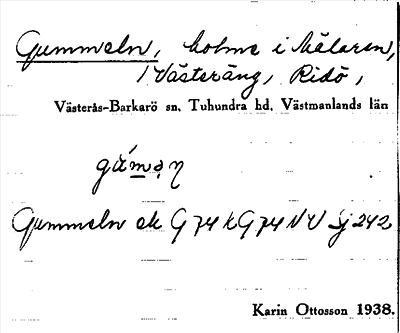 Gummeln, holme i Mälaren,
Västeräng, Ridö,
Västerås-Barkarö sn, Tuhundra hd, Västmanlands län
Gummeln ek G 74 k G 74 NV Sj 242
Karin Ottosson 1938.